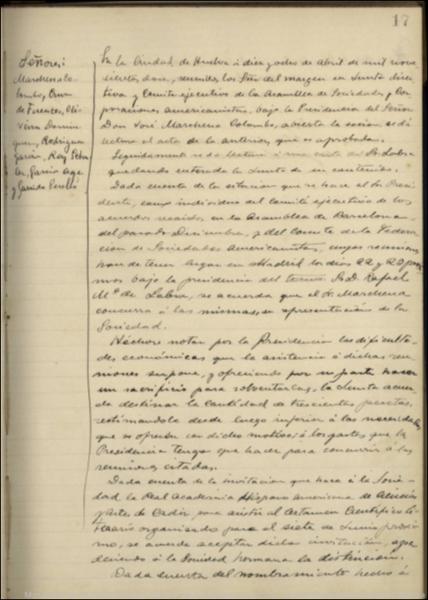 17
Señores:
Marchena Co-
lombo, Cruz
de Fuentes, Oli-
veira Domin-
guez, Rodriguez
Garcia, Roy
García
y Garrido Perelló
En la Ciudad de Huelva á diez y ocho de Abril de mil nove
cientos doce, reunidos los Sres. del margen en Junta direc-
tiva y Comité ejecutivo de la Asamblea de Sociedades y Cor-
poraciones americanistas, bajo la Presidencia del Señor
Don José Marchena Colombo, abierta la sesion se dió
lectura al acta de la anterior que es aprobada.
Seguidamente se da lectura á una carta del Sr. Labra
quedando enterada la Junta de su contenido.
Dada cuenta de la citacion que se hace al Sr. Presi-
dente, como individuo del Comité ejecutivo de los
acuerdos recaidos en la Asamblea de Barcelona
del pasado Diciembre, y del Comité de la Federa-
cion de Sociedades Americanistas, cuyas reuniones
han de tener lugar en Madrid los dias 22 y 23 proxi
mos bajo la presidencia del Sr. D. Rafael
Mª de Labra, se acuerda que el Sr. Marchena
concurra á las mismas en representacion de la
Sociedad.
Héchose notar por la Presidencia las dificulta-
des económicas que la asistencia á dichas reu-
niones supone, y ofreciendo por su parte hacer
un sacrificio para solventarlas, la Junta acuer-
da destinar la cantidad de trescientas pesetas,
estimandola desde luego inferior á las necesidades
que se ofrecen con dicho motivo, á los gastos que la
Presidencia tenga que hacer para concurrir á las
reuniones citadas.
Dada cuenta de la invitacion que hace á la Socie-
dad la Real Academia Hispano Americana de Ciencias
y Artes de Cadiz, para asistir al Certamen Científico Li-
terario organizado para el siete de Junio próxi-
mo, se acuerda aceptar dicha invitacion, agra-
deciendo á la Sociedad hermana la distincion.
Dada cuenta del nombramiento hecho á